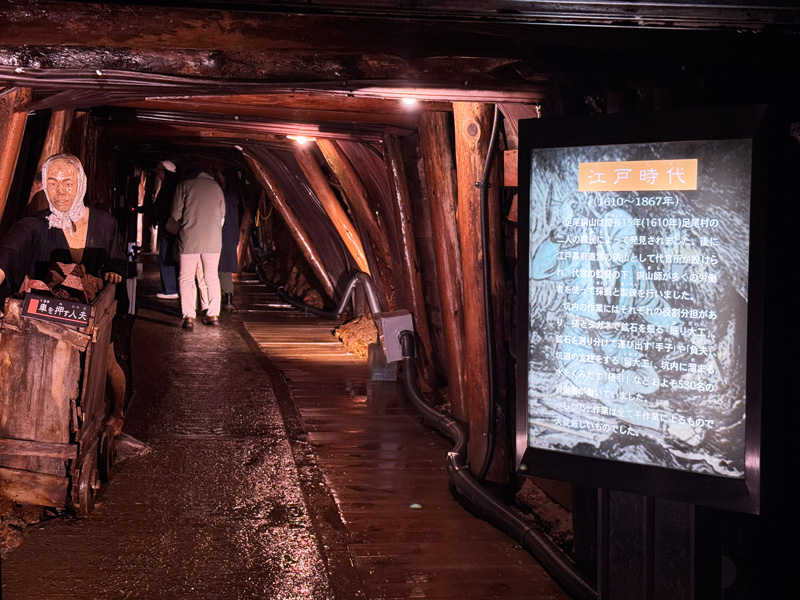 車を押す人夫
江戸時代
（1610～1867年）
足尾銅山は慶長15年(1610年)足尾村の
二人の農民によって発見されました。後に
江戸幕府直営の銅山として代官所が設けら
れ、代官の監督の下、銅山師が多くの労働
者を使って採掘と製錬を行いました。
坑内の作業にはそれぞれの役割分担があ
り、槌とタガネで鉱石を掘る「掘り大工」、
鉱石を選り分けて運び出す「手子」や「負夫」、
坑道の支柱をする「留大工」、坑内に溜まる
水をくみだす「樋引」などおよそ530名の
が働いていました。
しかし、作業は全て手作業によるもので
大変厳しいものでした。